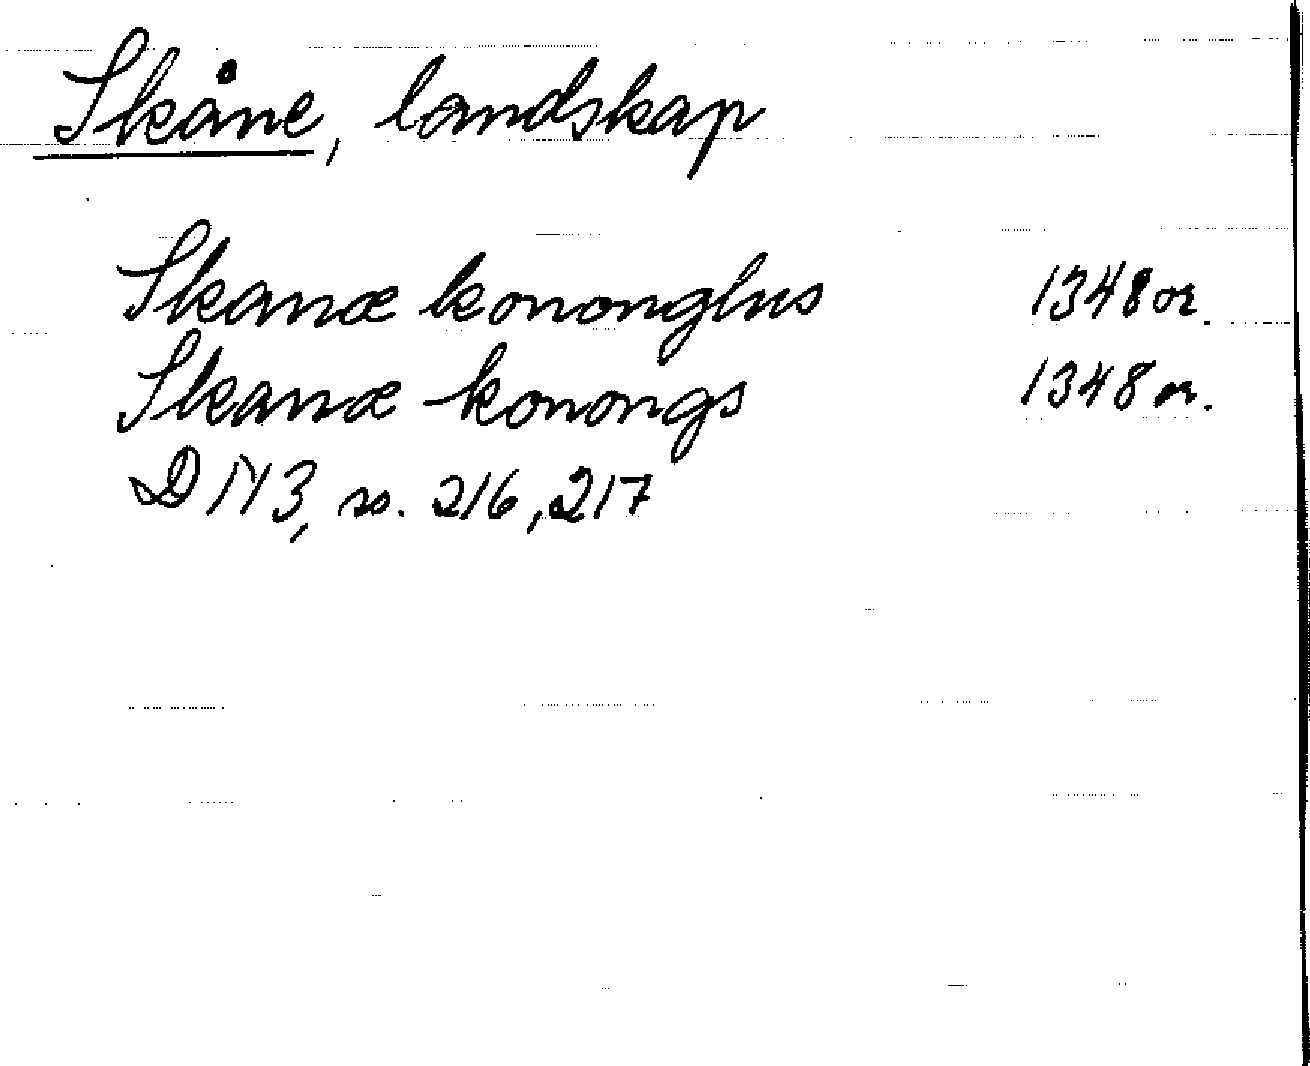 Skåne, landskap
Skanæ kononghus 1348 or.
Skanæ konongs 1348 or.
DN 3, s. 216, 217